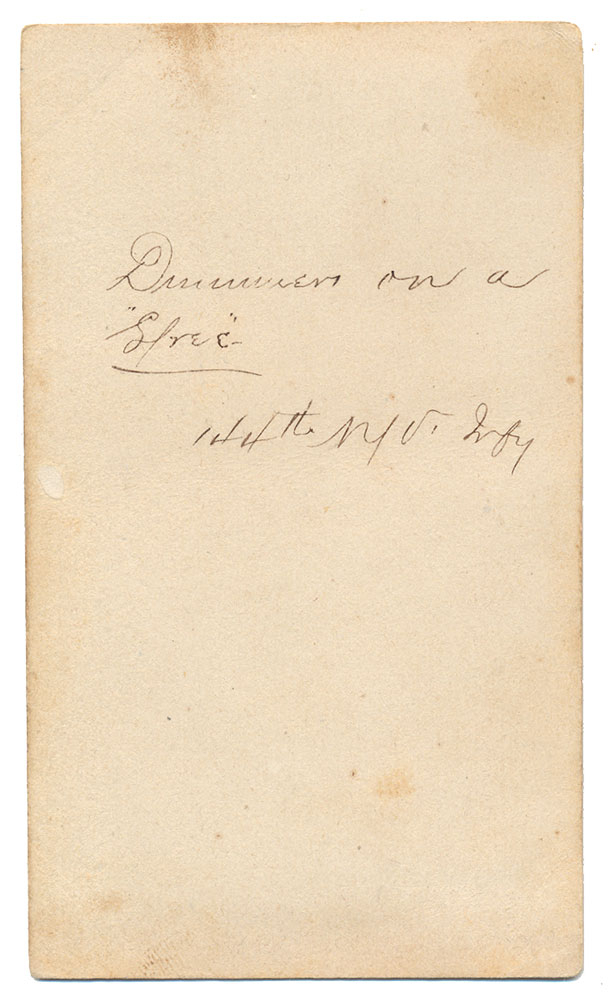 Drummers on a
"Spree"
144th N.Y.V. Infy